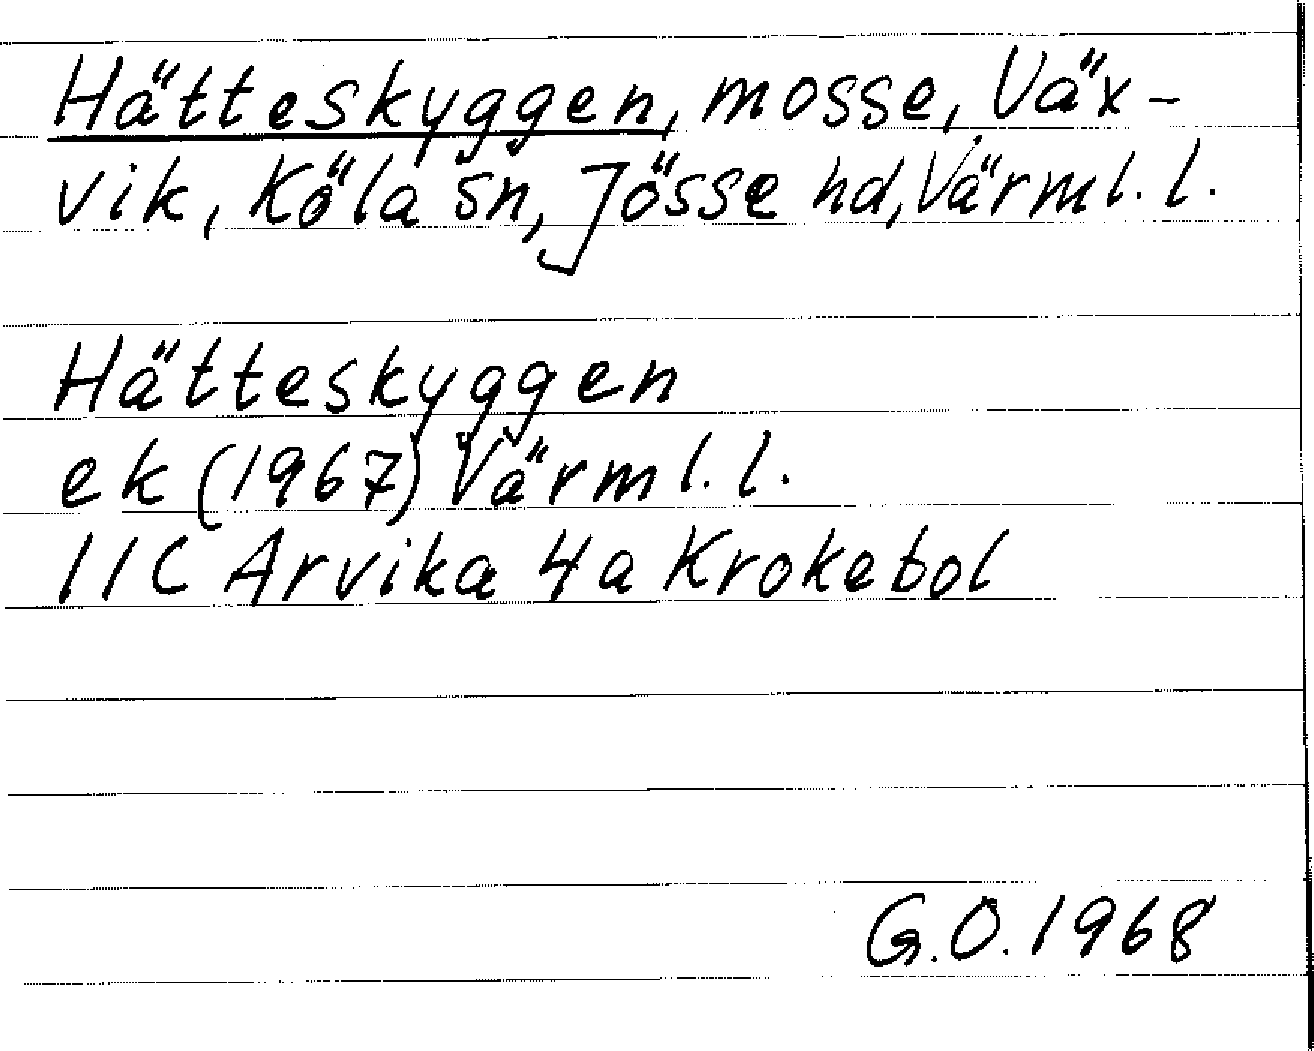 Hätteskyggen, mosse, Väx-
vik, Köla sn, Jösse hd, Värml. l.
Hätteskyggen
ek (1967) Värml. l.
11C Arvika 4a Krokebol
G.O. 1968